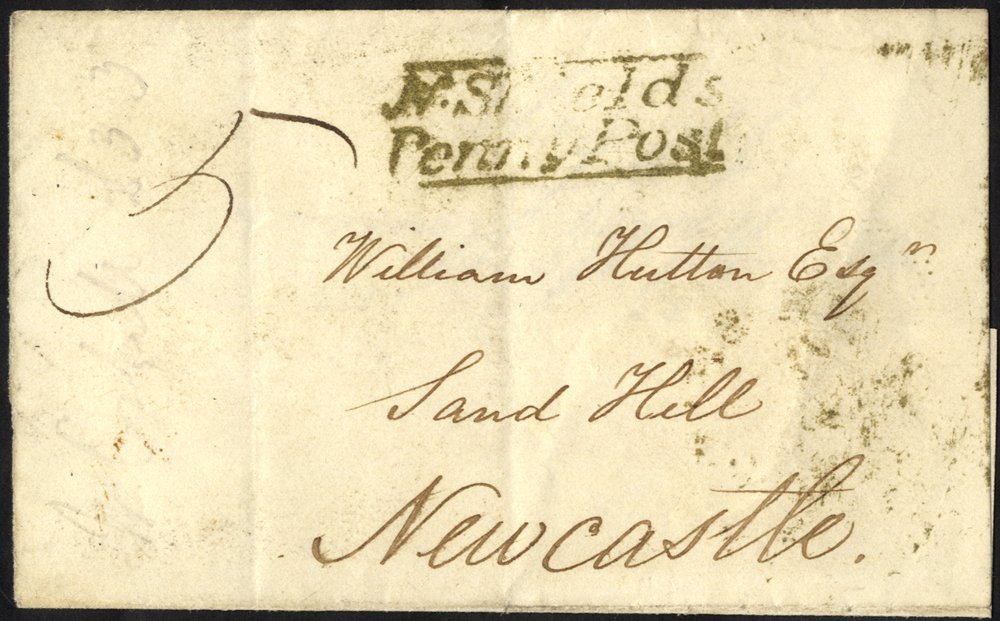 N. Shields
Penny Post
5
William Hutton Esqr.
Sand Hill
Newcastle.